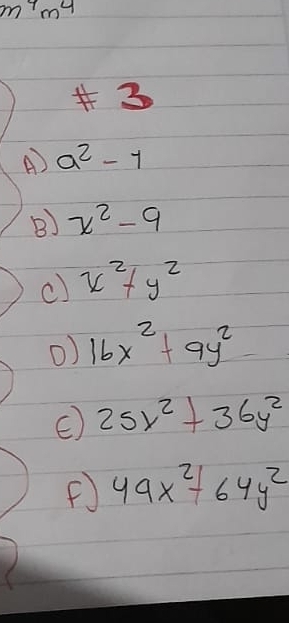 m⁴m⁴
# 3
A) a² - 1
B) x² - 9
C) x² + y²
D) 16x² + 9y²
E) 25x² + 36y²
F) 49x² + 64y²